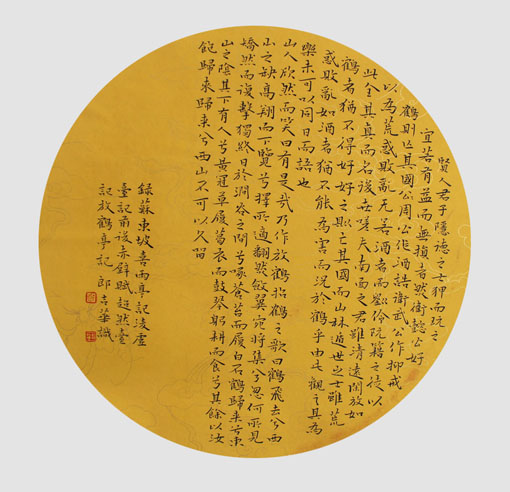 賢人君子隱德之士狎而玩之
宜若有益而無損者然衛懿公好
鶴則亡其國周公作酒誥衛武公作抑戒
以為荒惑敗亂無若酒者而劉伶阮籍之徒以
此全其真而名後世嗟夫南面之君雖清遠閑放如
鶴者猶不得好好之則亡其國而山林遁世之士雖荒
惑敗亂如酒者猶不能為害而況於鶴乎由此觀之其為
樂未可以同日而語也
山人欣然而笑曰有是哉乃作放鶴招鶴之歌曰鶴飛去兮西
山之缺高翔而下覽兮擇所適翻然斂翼宛將集兮忽何所見
矯然而復擊獨終日於澗谷之間兮啄蒼苔而履白石鶴歸來兮東
山之陰其下有人兮黃冠草履葛衣而鼓琴躬耕而食兮其餘以汝
飽歸來歸來兮西山不可以久留
錄蘇東坡喜雨亭記凌虛
臺記前後赤壁賦超然臺
記放鶴亭記郎吉華識